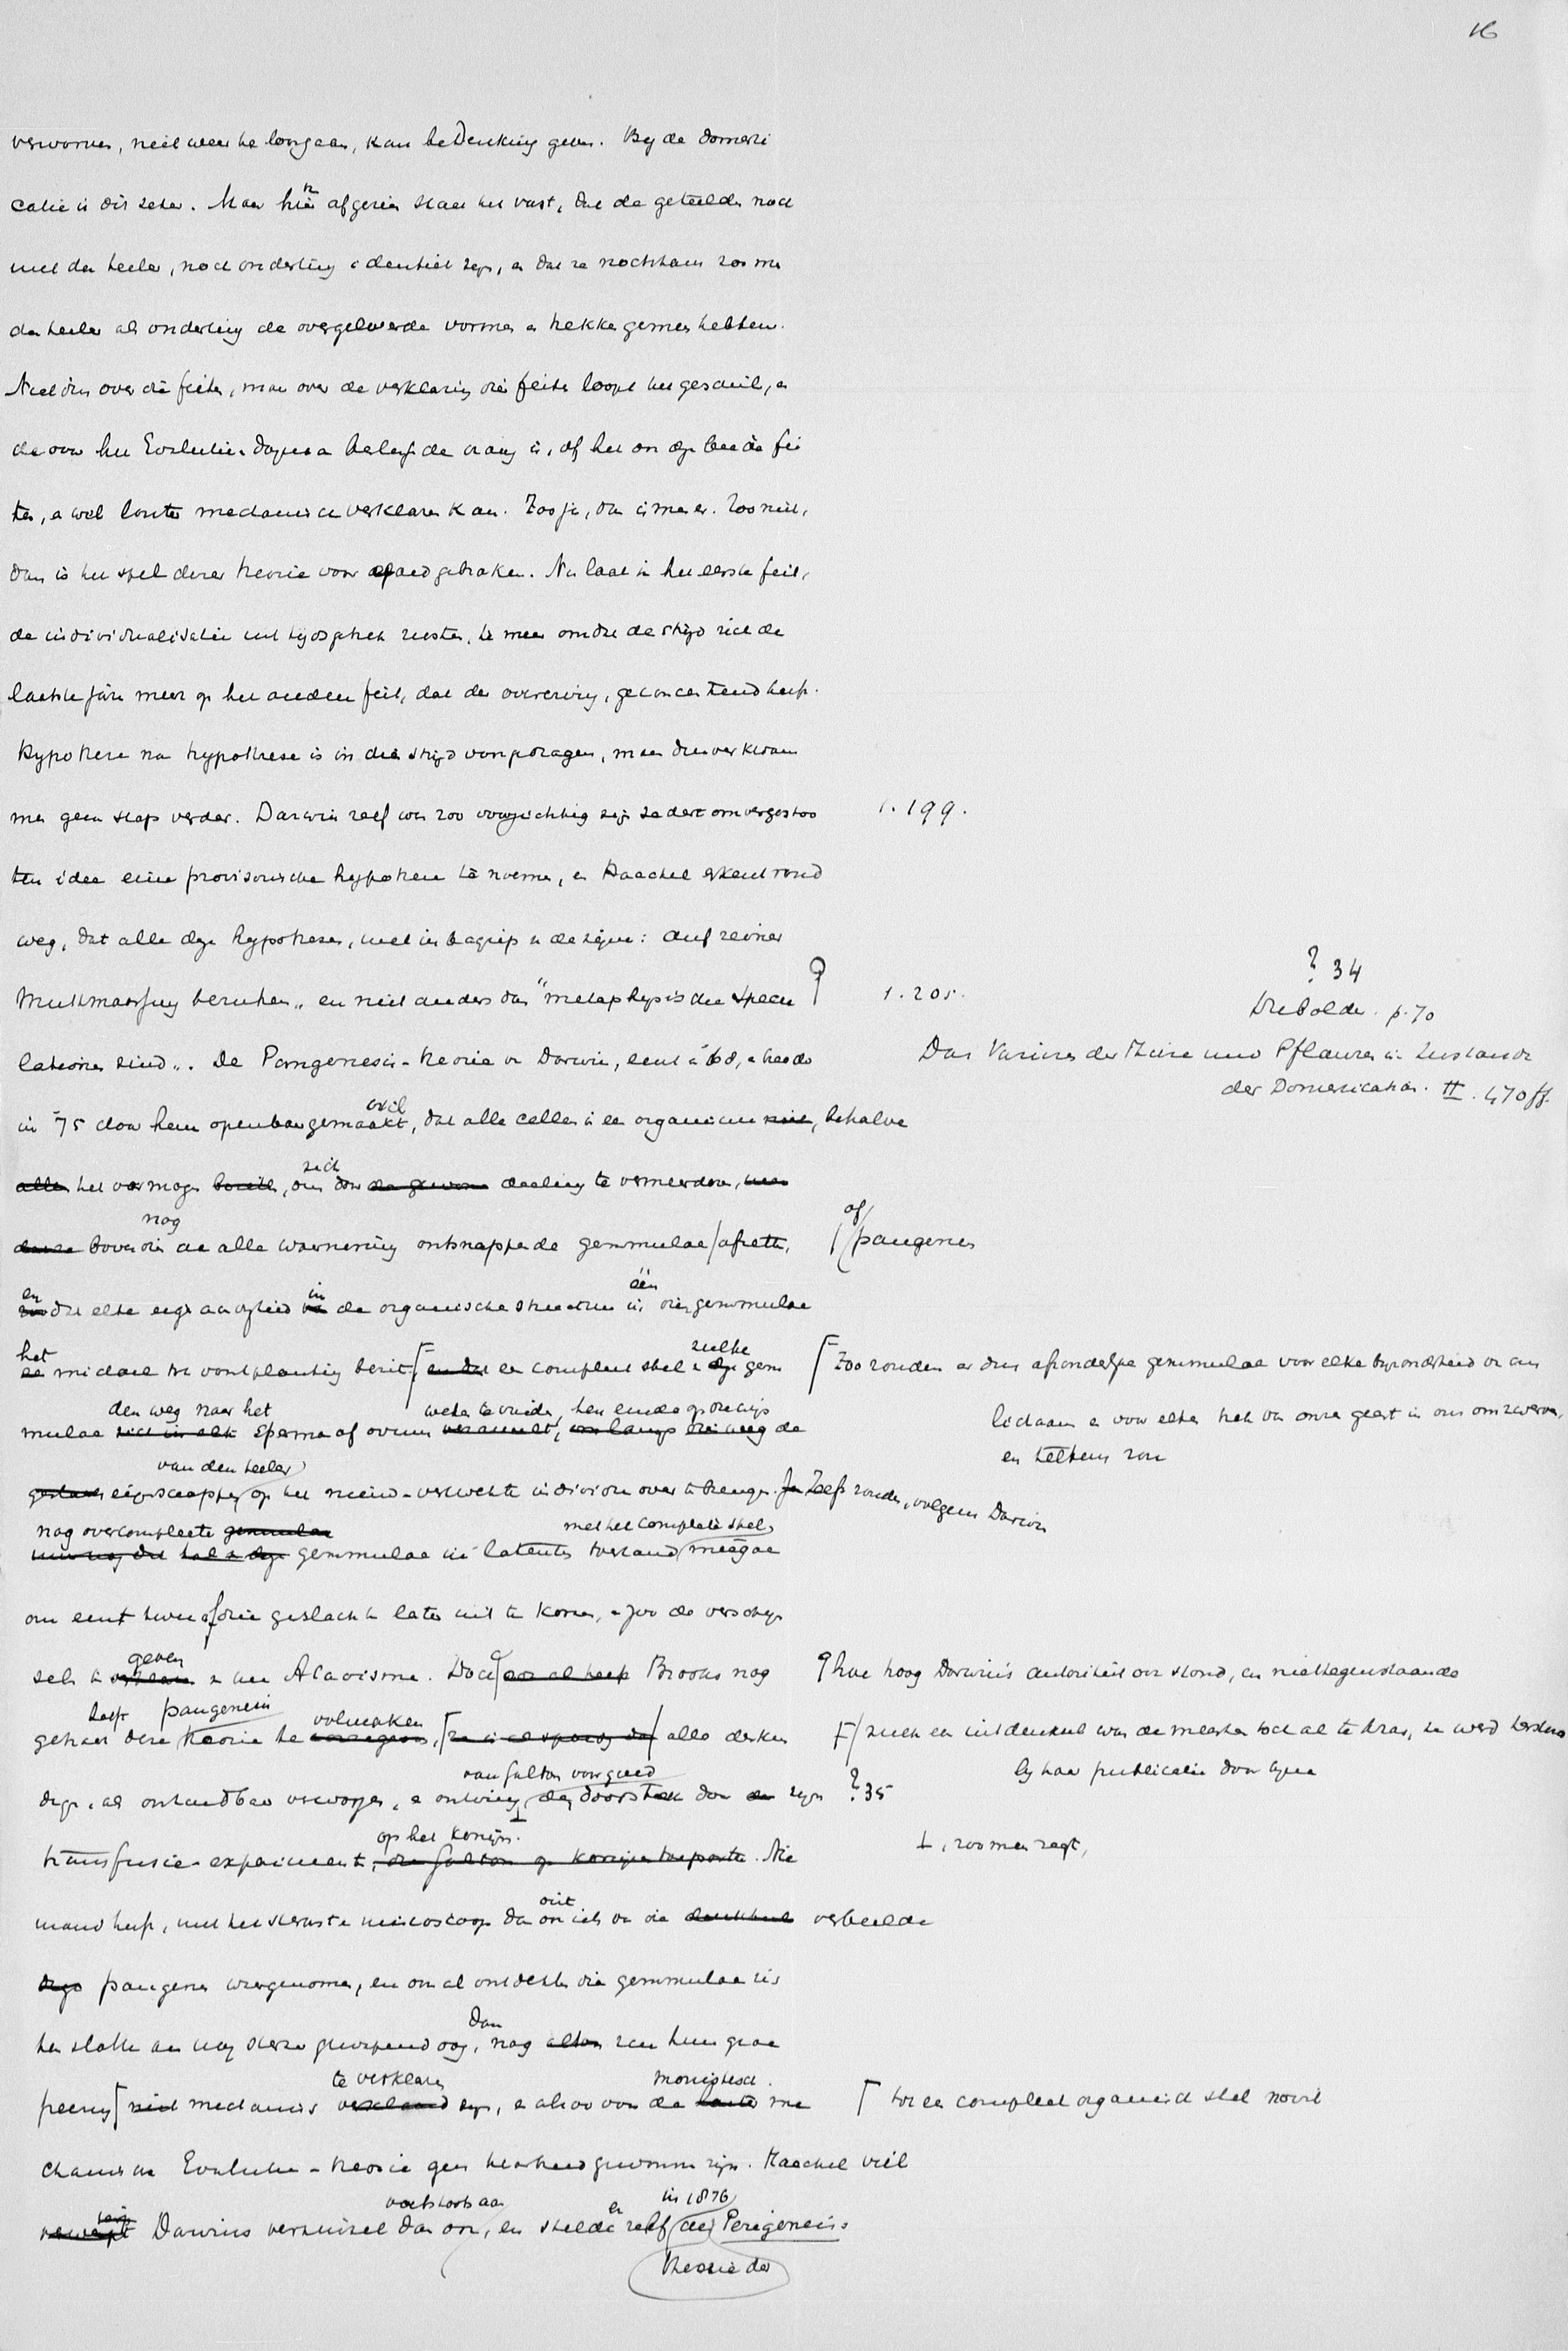 16
verworven, niet weer te loor gaan, kan bedenking geven. By de domesti
catie is dit zeker. Maar hiervan afgezien staat het vast, dat de geteelden noch
met den teeler, noch onderling identiek zyn, en dat ze nochtans zoo met
den teeler als onderling de overgeleverde vormen en trekken gemeen hebben.
Niet dus over die feiten, maar over de verklaring dier feiten loopt het geschil, en
de voor het Evolutie-dogma beslissende vraag is, of het ons deze beide fei
ten, en wel louter mechanisch verklaren kan. Zoo ja, dan is men er. Zoo niet,
dan is het spel dezer theorie voor goed gebroken. Nu laat ik het eerste feit,
de individualisatie uit tijdsgebrek rusten, te meer omdat de stryd zich de
laatste jaren meer op het andere feit, dat der overerving, geconcentreerd heeft.
Hypothese na hypothese is in dien stryd voorgedragen, maar dusver kwam
men geen stap verder. Darwin zelf was zoo voorzichtig zyn sedert omvergestoo
1.199.
ten idee eene provisorische hypothese te noemen, en Haeckel erkent rond
weg, dat alle deze hypothesen, met inbegrip van de zijne: auf reiner
Muthmassung beruhen„ en niet anders dan "metaphysische specu
1.205.
? 34
p. 70
lationen sind„. De Pangenesis-theorie van Darwin, eerst in '68, en
Das Variiren der Thiere und Pflanzen im Zustande
der Domestication. II. 470 ff.
in '75 door hem openbaar gemaakt, dat alle cellen in een organisme niet, behalve
alleen het vermogen bezit, om zich door de gewone deeling te vermeerderen, maar
deze nog bovendien aan alle waarneming ontsnappende gemmulae / afzetten,
of/ pangenen
en dat elke eigenaardigheid in de organische structuur in dier gemmulae één
het middel ter voortplanting bezit, en dat een compleet stel van zulke gem
Zoo zouden er dus afzonderlyke gemmulae voor elke byzonderheid van ons
lichaam en voor elken trek van onze geest in ons omzwerven,
en telkens zou
mulae den weg naar het sperma of ovum weten te vinden, ten einde op die wijs de
eigenschappen van den teeler op het nieuw-verwekte individu over te brengen. Zelfs zouden, volgens Darwin
nog overcompleete gemmulae in latenten toestand met het complete stel meegaan
om eerst twee of drie geslachten later uit te komen, en zoo de verschyn
sels te geven van het Atavisme. Doch zoo al heeft Brooks nog
hoe hoog Darwin's autoriteit ook stond, en niettegenstaande
getracht deze pangenesis theorie te volmaken, alle derken
zulk een uitdenksel was de meesten toch al te kras, ze werd terstond
by haar publicatie door byna
dige, als onhoudbaar verworpen, en ontving van Galton voorgoed den doorsteek door zyn
? 35
transfusie-experiment, op het konyn. Nie
⊥, zoo men zegt,
mand heeft, met het sterkste microscoop dan ooit iets van die verbeelde
pangenen waargenomen, en ook al ontdekte die gemmulae zich
ten slotte aan nog sterker gewapend oog, dan nog zou hun groe
peering niet mechanisch te verklaren zyn, en alzoo voor de monistisch me
tot een compleet organisch stel nooit
chanische Evolutie-theorie geen terrein gewonnen zyn. Haeckel viel
Darwins versuisel dan ook, en stelde er zelf in 1876 de Perigenesis
theorie der